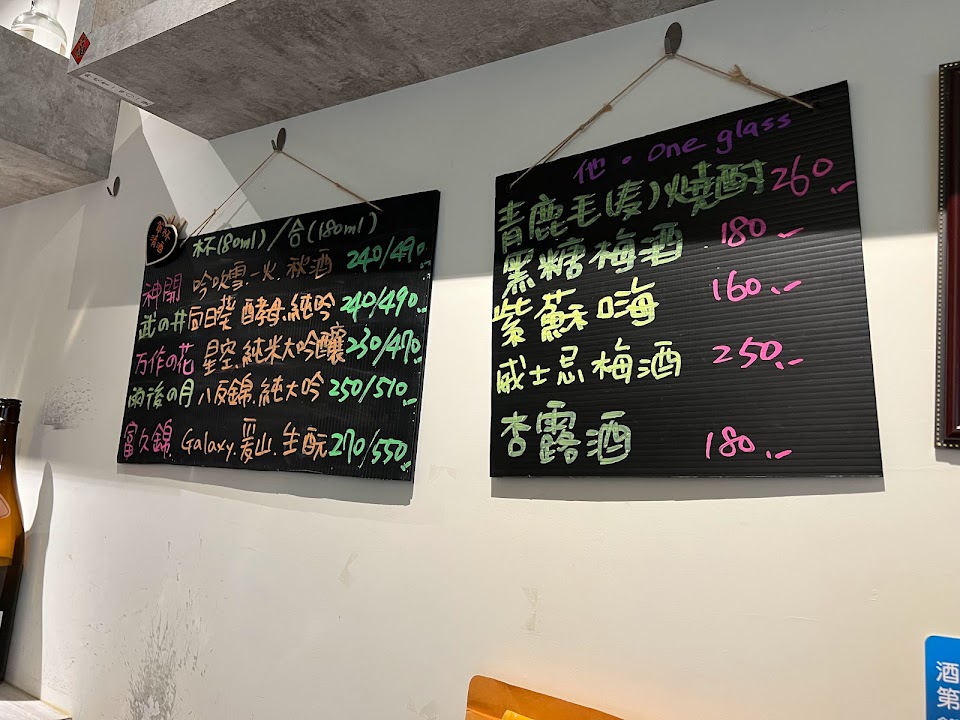 杯(80ml)/合(180ml)
神開 吟吹雪.一火.秋酒 240/490.-
武の井 向日葵 酵母.純吟 240/490.-
万作の花 星空.純米大吟釀 230/470.-
雨後の月 八反錦.純大吟 250/510.-
富久錦. Galaxy.愛山.生酛 270/550.-
他・One glass
青鹿毛(麦)燒酎 260.-
黑糖梅酒 180.-
紫蘇嗨 160.-
威士忌梅酒 250.-
杏露酒 180.-
酒
第